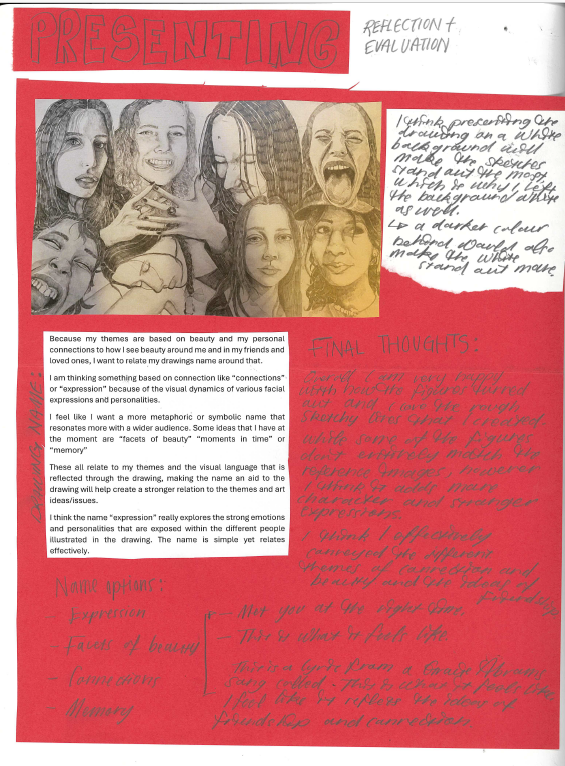 PRESENTING
REFLECTION +
EVALUATION
I think presenting the
drawing on a white
background will
make the sketches
stand out the most
which is why I left
the background white
as well.
↳ a darker colour
behind would also
make the white
stand out more.
Because my themes are based on beauty and my personal
connections to how I see beauty around me and in my friends and
loved ones, I want to relate my drawings name around that.
I am thinking something based on connection like “connections”
or “expression” because of the visual dynamics of various facial
expressions and personalities.
I feel like I want a more metaphoric or symbolic name that
resonates more with a wider audience. Some ideas that I have at
the moment are “facets of beauty” “moments in time” or
“memory”
These all relate to my themes and the visual language that is
reflected through the drawing, making the name an aid to the
drawing will help create a stronger relation to the themes and art
ideas/issues.
I think the name “expression” really explores the strong emotions
and personalities that are exposed within the different people
illustrated in the drawing. The name is simple yet relates
effectively.
DRAWING NAME:
FINAL THOUGHTS:
Overall I am very happy
with how the figures turned
out and I love the rough
sketchy lines that I created.
while some of the figures
don't entirely match the
reference images, however
I think it adds more
character and stronger
expressions.
I think I effectively
conveyed the different
themes of connection and
beauty and the ideas of
friendship
Name options:
- Expression
- Facets of beauty
- Connections
- Memory
- Met you at the right time.
- This is what it feels like.
This is a lyric from a Gracie Abrams
song called - This is what it feels like
I feel like it reflects the ideas of
friendship and connection.